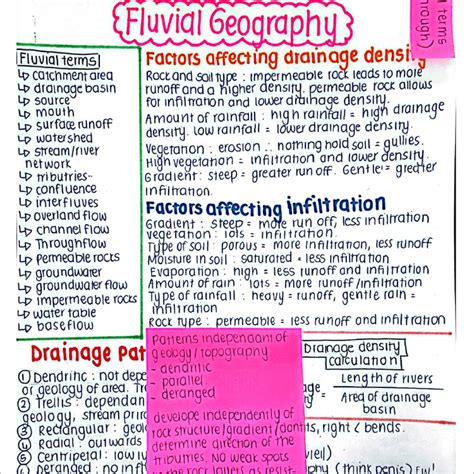 Fluvial Geography
terms
through)
Fluvial terms
↳ catchment area
↳ drainage basin
↳ source
↳ mouth
↳ surface runoff
↳ watershed
↳ stream/river
network
↳ tributries-
↳ confluence
↳ interfluves
↳ overland flow
↳ channel flow
↳ Throughflow
↳ permeable rocks
↳ groundwater
↳ groundwater flow
↳ impermeable rocks
↳ water table
↳ baseflow
Factors affecting drainage densit
Rock and soil type : impermeable rock leads to more
runoff and a higher density. permeable rock allows
for infiltration and lower drainage density.
Amount of rainfall : high rainfall = high drainage
density. low rainfall = lower drainage density.
Vegetation : erosion ∴ nothing hold soil = gullies.
High vegetation = infiltration and lower density.
Gradient : steep = greater run off. Gentle = greater
infiltration.
Factors affecting infiltration
Gradient : steep = more run off, less infiltration
vegetation : lots = infiltration.
Type of soil : porous = more infiltration, less runoff
Moisture in soil : saturated = less infiltration
Evaporation : high = less runoff and infiltration
Amount of rain : lots = more runoff/infiltration
Type of rainfall : heavy = runoff, gentle rain =
infiltration
Rock type : permeable = less runoff and infiltration
Drainage Pat
① Dendritic : not dep
or geology of area. Tre
② Trellis : dependan
geology, stream prir
③ Rectangular : geolo
④ Radial : outwards
⑤ Centripetal : low lyi
⑥ Deranged : no infl
Patterns independant of
geology/topography
- dendritic
- parallel
- deranged
develope independently of
rock structure/gradient/
determine direction of the
tributries. No weak spots
Drainage density
calculation
Length of rivers
Area of drainage
basin
right < bends.
(think penis)